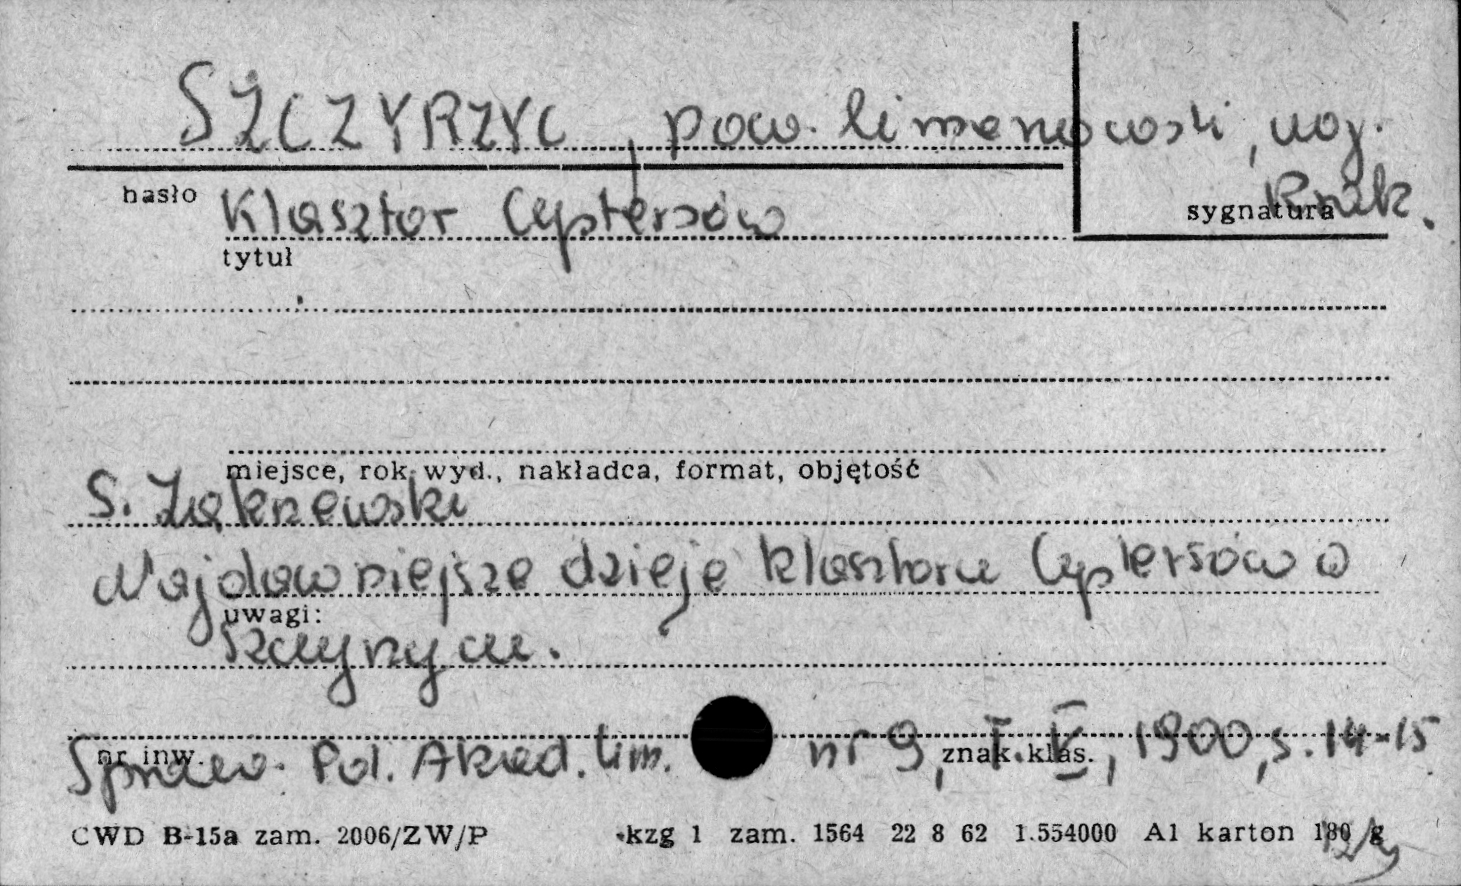 SZCZYRZYC, pow. limanowski, woj.
hasło
Krak.
sygnatura
Klasztor Cystersów
tytuł
miejsce, rok wyd., nakładca, format, objętość
S. Zakrzewski
Najdawniejsze dzieje klasztoru Cystersów w
uwagi:
Szczyrzycu.
nr inw.
znak. klas.
Sprawo. Pol. Akad. Um. nr 9, T. V, 1900, s. 14-15
CWD B-15a zam. 2006/ZW/P kzg 1 zam. 1564 22 8 62 1.554000 A1 karton 180 g